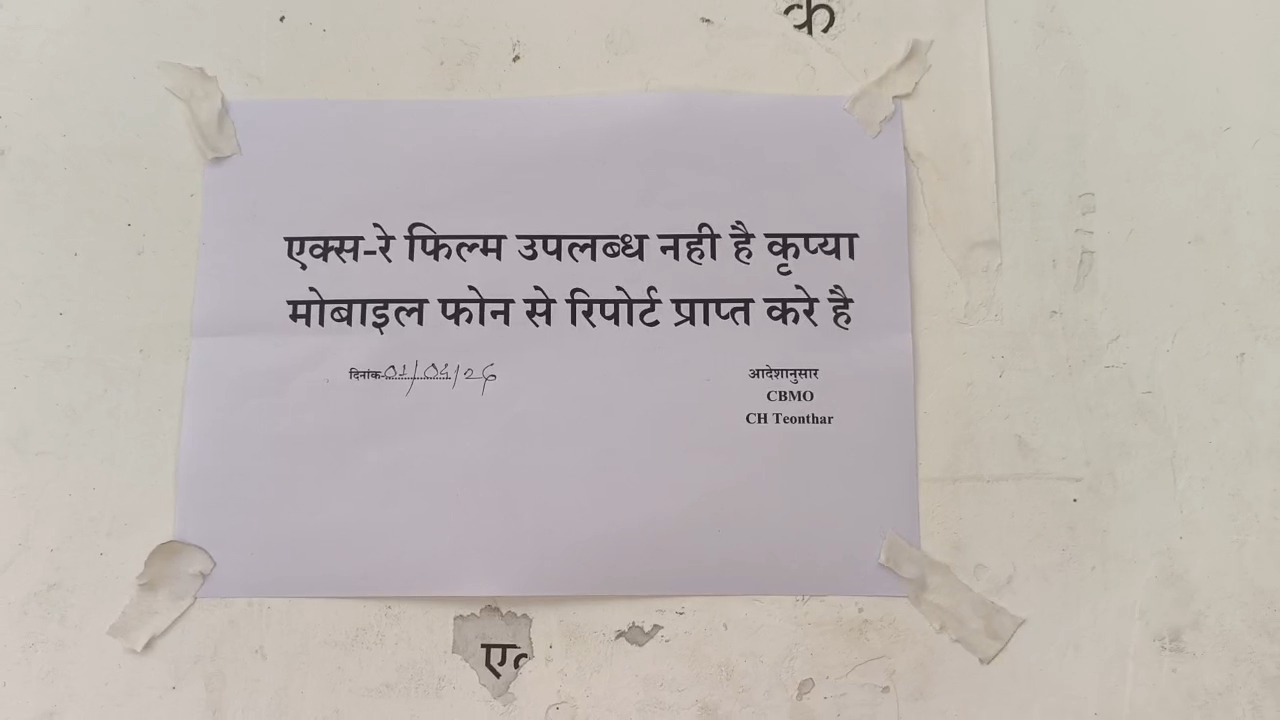 क
एक्स-रे फिल्म उपलब्ध नही है कृप्या
मोबाइल फोन से रिपोर्ट प्राप्त करे है
दिनांक-01/04/26
आदेशानुसार
CBMO
CH Teonthar